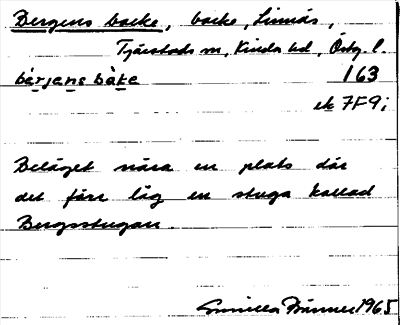 Bergens backe, backe, Linnäs,
Tjärstads sn, Kinda hd, Östg. l.
bærjens bàke 163
ek 7F9i
Beläget nära en plats där
det förr låg en stuga kallad
Bergsstugan.
Gunilla 1965